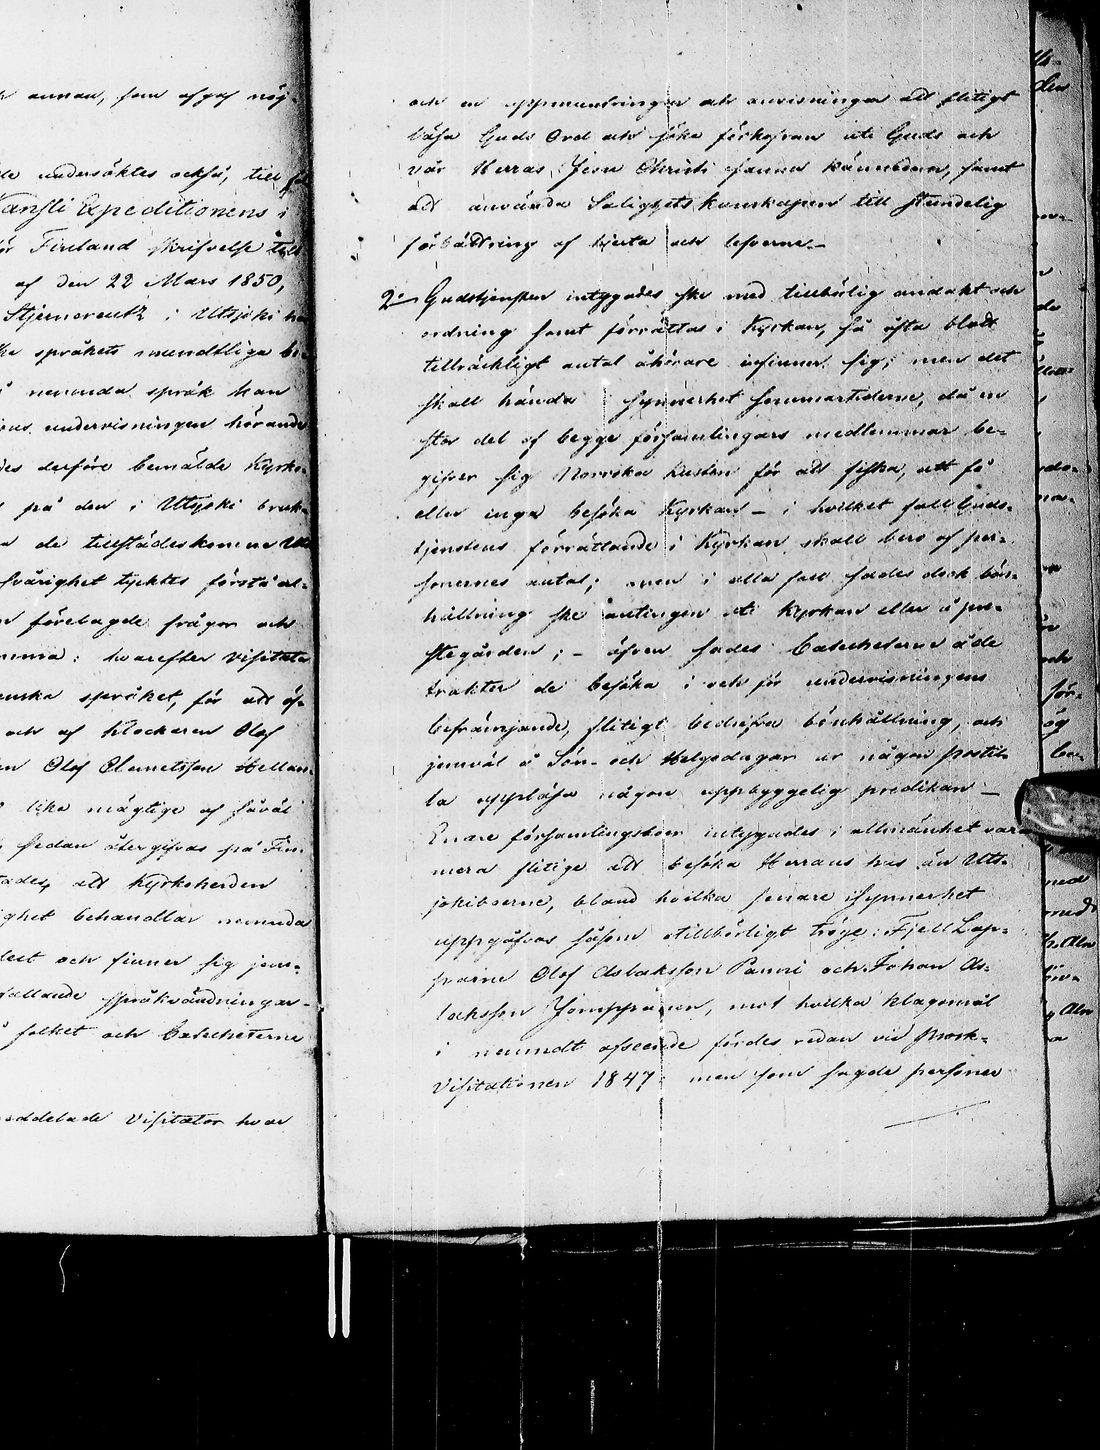 annan, som afgaf nöj-
de undersöktes också, till föl
Kansli Expeditionens i
för Finland skrifvelse till
af den 22 Mars 1850,
Stjernereutz i Utsjoki ha
ka språkets mundtliga be-
nemnda språk han
undervisningen hörande
des derföre bemälde Kyrko-
på den i Utsjoki bruk-
de tillstädeskomne
svårighet tycktes förstå al-
förelagde frågor och
mma: hvarefter Visitator
enska språket, för att öf-
och af Klockaren Olof
Olof Clemetsson Hellan-
lika mägtige af såväl
sedan återgifvas på Fin-
tades, att Kyrkoherden
ighet behandlar nemnda
lect och finner sig jem-
fallande språkvändningar
folket och Catecheterne
meddelade Visitator hvar
och en uppmuntringar och anvisningar att flitigt
läsa Guds Ord och söka förkofran uti Guds och
vår Herras Jesu Christi sanna kännedom, samt
att använda Salighetskunskapen till stundelig
förbättring af hjerta och leferne.
2o Gudstjensten intygades ske med tillbörlig andakt och
ordning samt förrättas i Kyrkan, så ofta blott
tillräckligt antal åhörare infinner sig; men det
skall hända i synnerhet sommartiderne, då en
stor del af begge församlingars medlemmar be-
gifver sig Norrska kusten för att fiska, att få
eller inga besöka Kyrkan – i hvilket fall Guds-
tjenstens förrättande i Kyrkan skall bero af per-
sonernes antal; men i alla fall sades dock bön-
hållning ske antingen uti Kyrkan eller å pre-
stegården; – äfven sades Catecheterne å de
trakter de besöka i och för undervisningens
befrämjande, flitigt bedrifva bönhållning, och
jemväl å Sön- och Helgedagar ur någon postil-
la uppläsa någon uppbyggelig predikan –
Enare församlingsboer intygades i allmänhet vara
mera flitige att besöka Herrans hus än Uts-
jokiboerne, bland hvilka senare isynnerhet
uppgåfvos såsom otillbörligt tröge: Fjell Lap-
parne Olof Aslaksson Panni och Johan As-
laksson Jomppanen, mot hvilka klagomål
i nemndt afseende fördes redan vid Prost-
Visitationen 1847 men som sagde personer